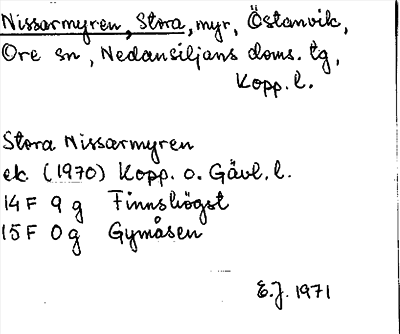 Nissarmyren, Stora, myr, Östanvik,
Ore sn, Nedansiljans doms. tg,
Kopp. l.
Stora Nissarmyren
ek (1970) Kopp. o. Gävl. l.
14F 9g Finnshögst
15F 0g Gymåsen
E.J. 1971